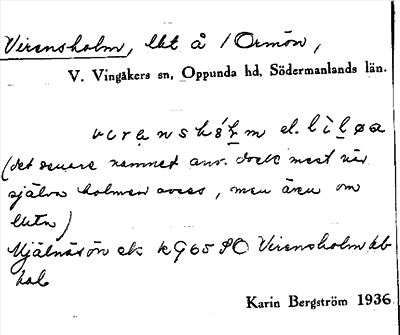 Virensholm, lht å /Ormön,
V. Vingåkers sn, Oppunda hd, Södermanlands län.
el.
(det senare namnet anv. dock mest när
själva holmen avses, men även om
lhtn)
Mjälnäsön ek kG65SO Virensholm hb
hol
Karin Bergström 1936